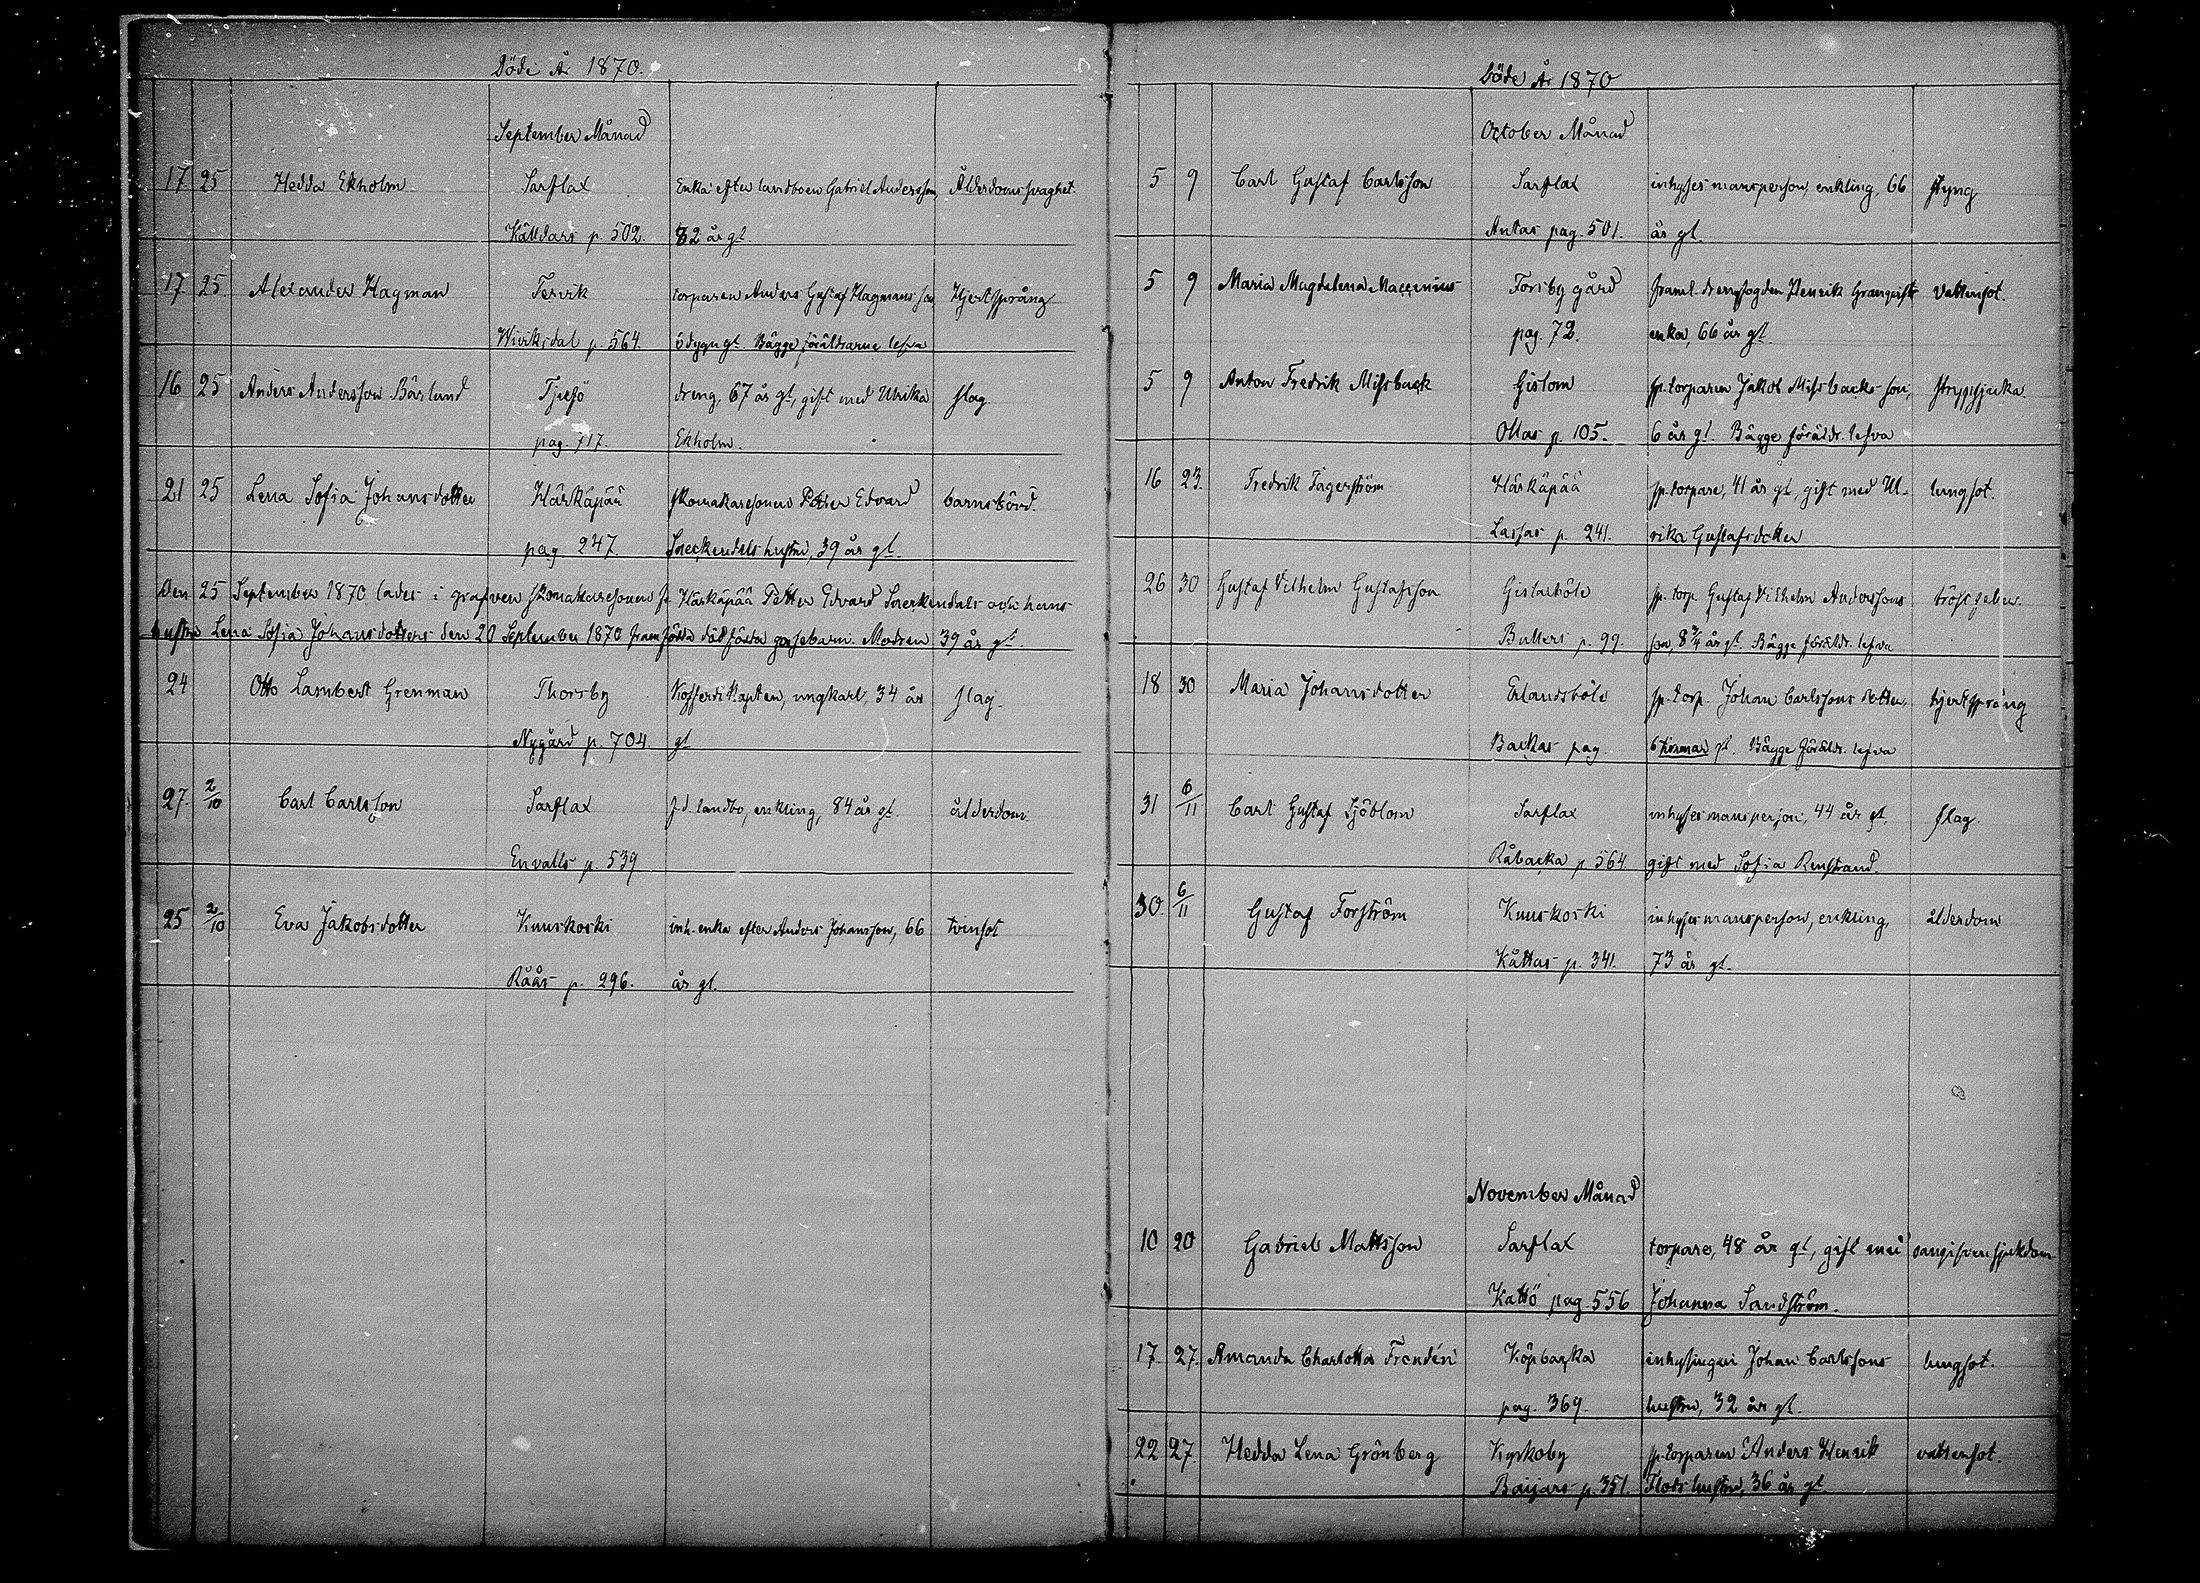 Döde År 1870.
September Månad
17 25 Hedda Ekholm Sarflax Enka efter landboen Gabriel Andersson, Ålderdomssvaghet.
Källdars p. 502. 82 år gl.
17. 25. Alexander Hagman Tervik torparen Anders Gustaf Hagmans son Hjertsprång
Wiviksdal p. 564. 6 dygn gl. Bägge föräldrarne lefva
16 25 Anders Andersson Bärlund Tjusö dreng, 67 år gl, gift med Ulrika slag.
pag. 717. Ekholm.
21 25 Lena Sofia Johansdotter Härkäpää skomakaresonen Petter Edvard barnsbörd.
pag 247. Sneckendals hustru, 39 år gl.
Den 25 September 1870 lades i grafven skomakaresonen fr. Härkäpää Petter Edvard Sneckendals och hans
hustru Lena Sofia Johansdotters den 20 September 1870 framfödda dödfödda gossebarn. Modren 39 år gl.
24 Otto Lambert Grenman Thorsby Kofferdi Kapten, ungkarl, 34 år slag.
Nygård p. 704. gl
27. 2/10 Carl Carlsson Sarflax f.d. landbo, enkling, 84 år gl. ålderdom.
Envalls p. 539
25 2/10 Eva Jakobsdotter Kuuskoski inh. enka efter Anders Johansson, 66 tvinsot
Råås p. 296. år gl.
Döde År 1870
October Månad
5 9 Carl Gustaf Carlsson Sarflax inhyses mansperson, enkling, 66 styng
Antas pag. 501. år gl.
5 9 Maria Magdalena Maccenius Forsby gård framl. drengfogden Henrik Granqvists vattensot.
pag. 72. enka, 66 år gl.
5 9 Anton Fredrik Missback Gislom sp. torparen Jakob Missbacks son, strypsjuka.
Ollas p. 105. 6 år gl. Bägge föräldr. lefva
16 23. Fredrik Fagerström Härkäpää sp. torpare, 41 år gl, gift med Ul- lungsot.
Lassas p. 241. rika Gustafsdotter
26 30 Gustaf Vilhelm Gustafsson Gislarböle sp. torp. Gustaf Vilhelm Anderssons bröst feber.
Bullers p. 99. son, 8 3/4 år gl. Bägge föräldr. lefva
18 30 Maria Johansdotter Erlandsböle sp. torp. Johan Carlssons dotter, hjertsprång
Backas pag. 6 timmar gl. Bägge föräldr. lefva
31 6/11 Carl Gustaf Sjöblom Sarflax inhyses mansperson, 44 år gl, slag.
Råbacka p. 564. gift med Sofia Renstrand.
30. 6/11 Gustaf Forström Kuuskoski inhyses mansperson, enkling, ålderdom
Kåttas p. 341. 73 år gl.
November Månad
10 20 Gabriel Mattsson Sarflax torpare, 48 år gl, gift med
Kattö pag. 556 Johanna Sandström.
17. 27. Amanda Charlotta Frendén Köpbacka inhysingen Johan Carlssons lungsot.
pag. 369. hustru, 32 år gl.
22 27. Hedda Lena Grönberg Kyrkoby sp. torparen Anders Henrik vattensot.
Baijars p. 351. Flods hustru, 36 år gl